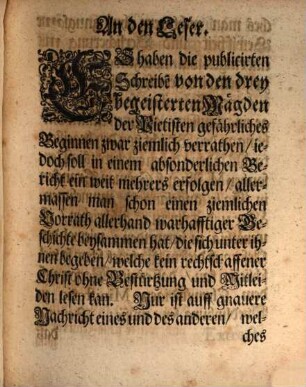 An den Leser.
ES haben die publicirten
Schreibē von den drey
begeisterten Mägden
der Pietisten gefährliches
Beginnen zwar ziemlich verrathen/ ie-
doch soll in einem absonderlichen Be-
richt ein weit mehrers erfolgen/ aller-
massen man schon einen ziemlichen
Vorrath allerhand warhafftiger Ge-
schichte beysammen hat/ die sich unter ih-
nen begeben/ welche kein rechtschaffener
Christ ohne Bestürtzung und Mitlei-
den lesen kan. Nur ist auff gnauere
Nachricht eines und des anderen/ wel-
ches